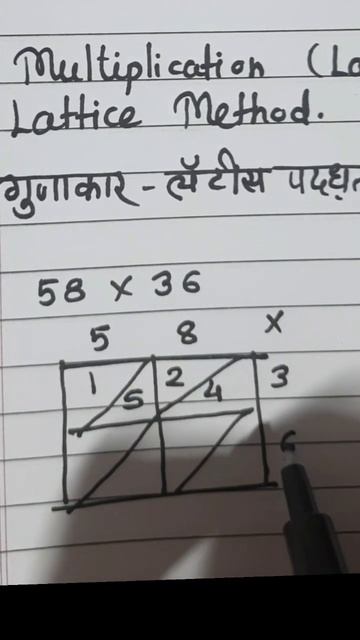 Multiplication (La
Lattice Method.
गुणाकार - लॅटीस पदध्त
58 x 36
5 8 x
1 5 2 4 3